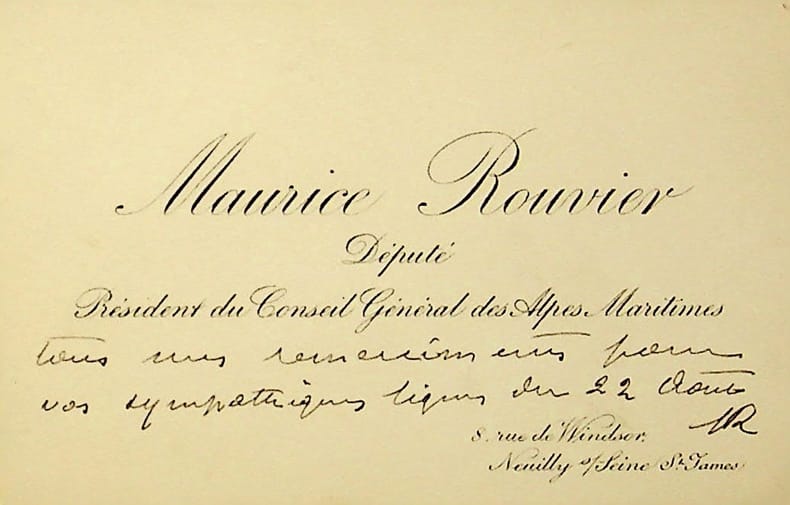 Maurice Rouvier
Député
Président du Conseil Général des Alpes Maritimes
tous mes remerciements pour
vos sympathiques lignes du 22 Août
MR
8, rue de Windsor,
Neuilly s/Seine St. James